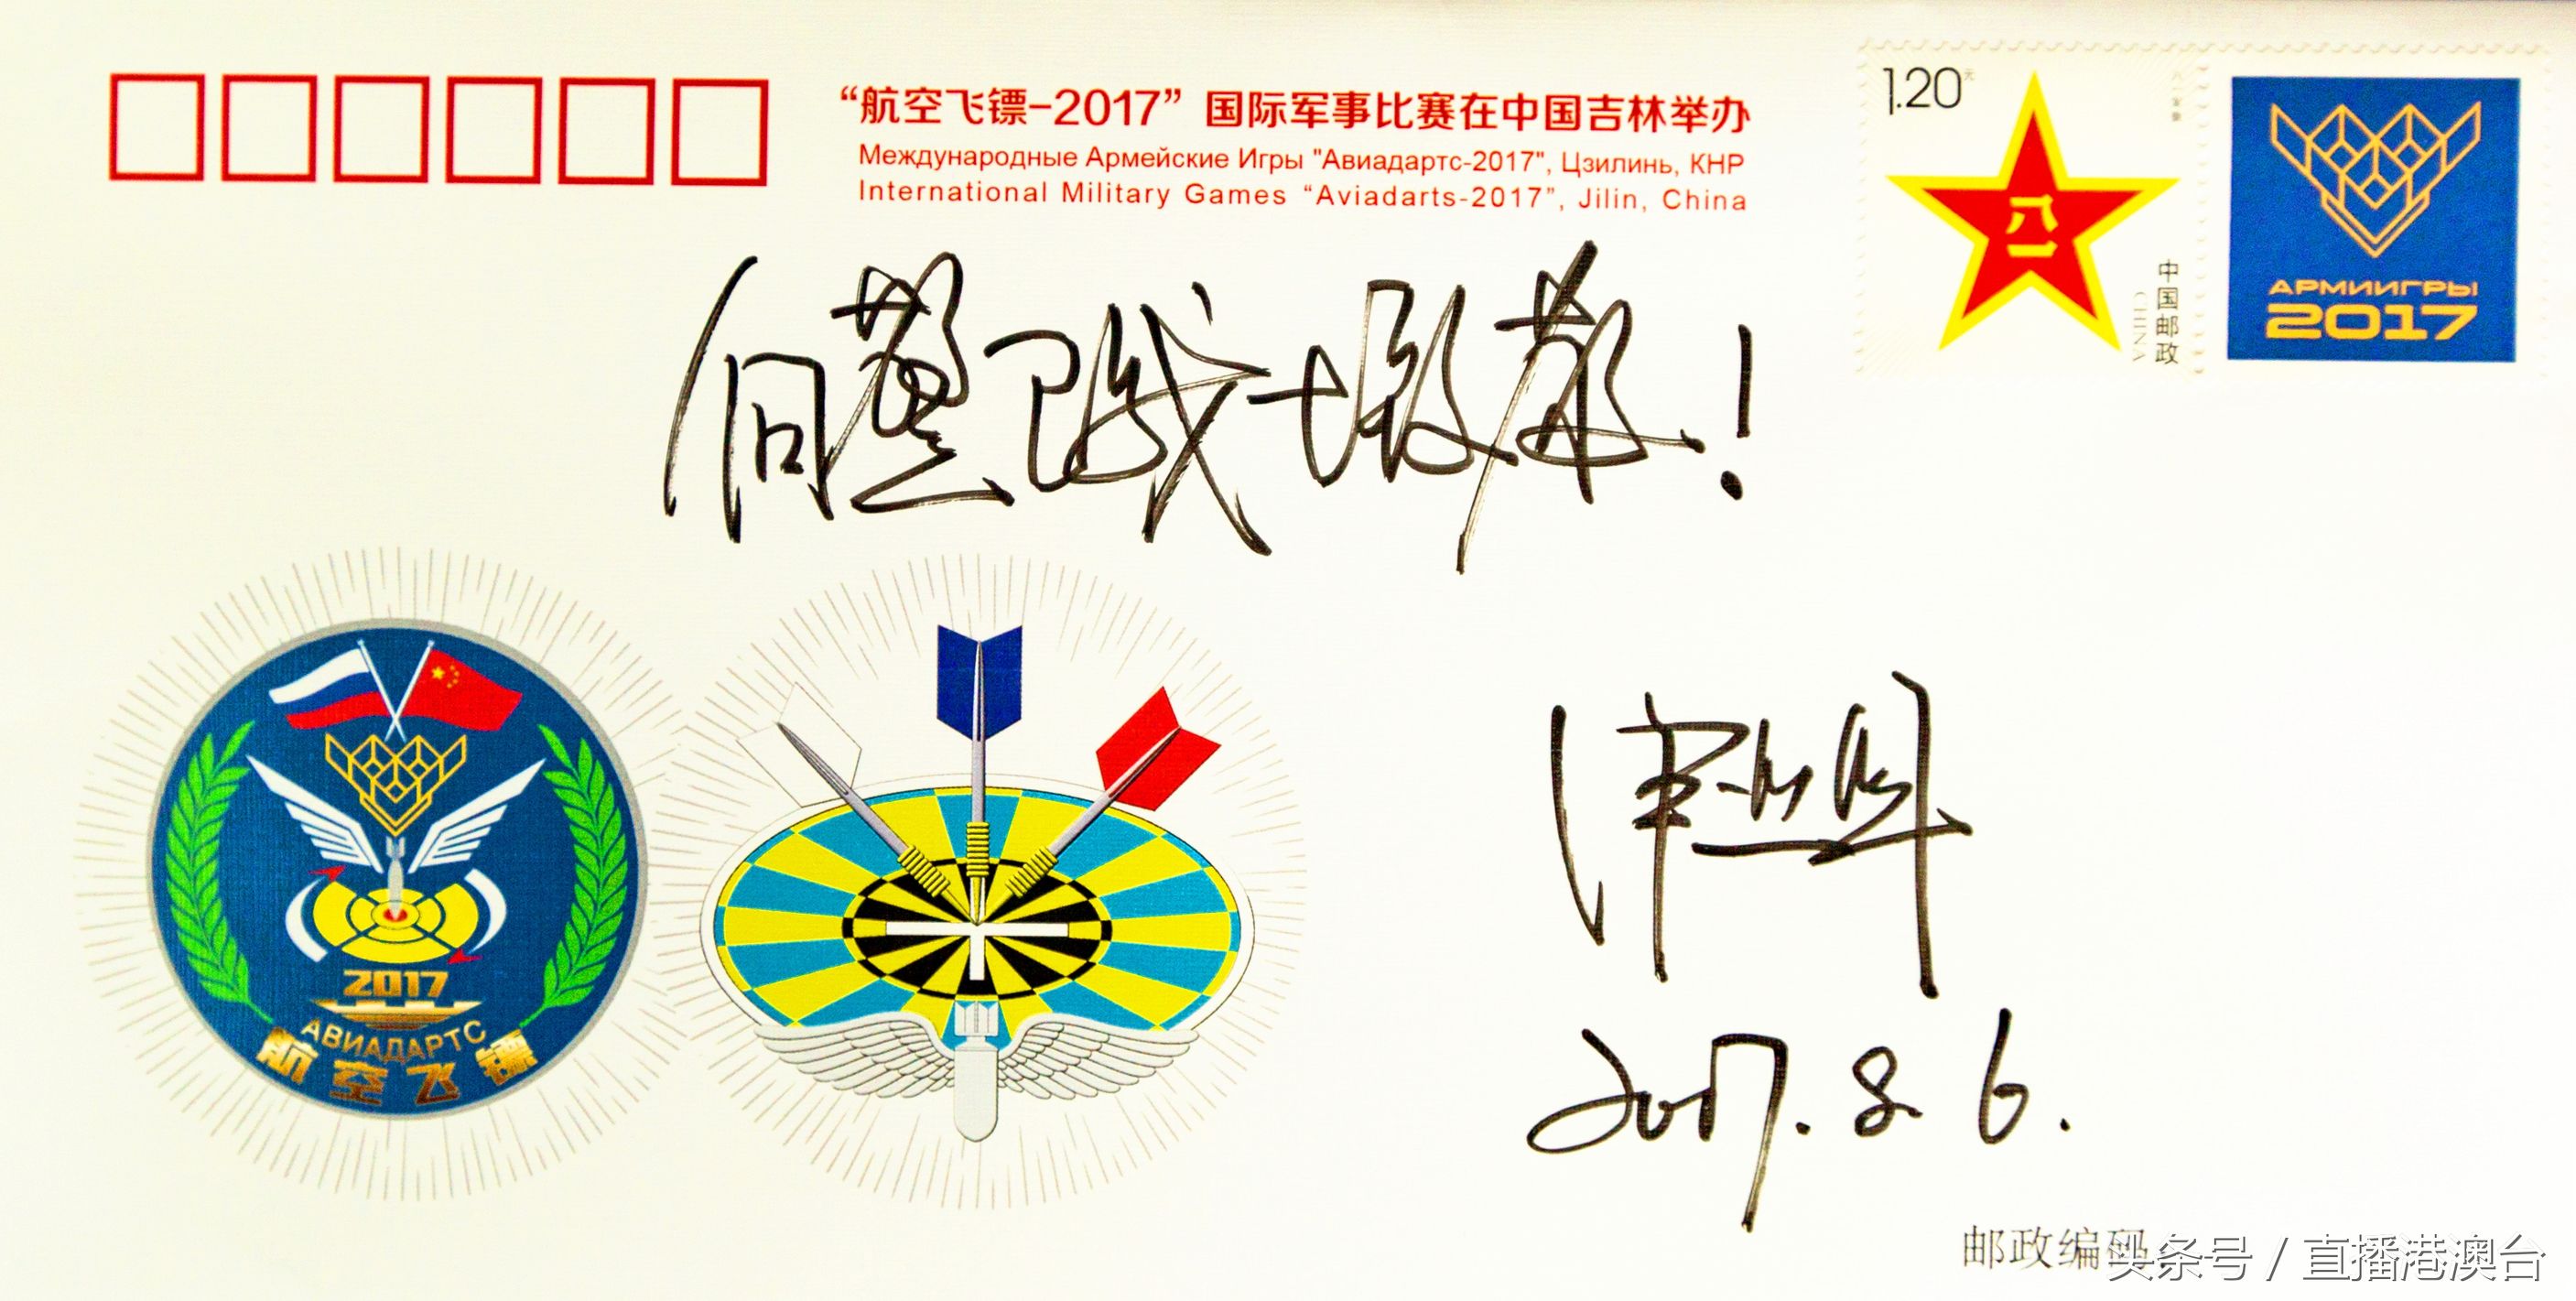 “航空飞镖-2017”国际军事比赛在中国吉林举办
Международные Армейские Игры "Авиадартс-2017", Цзилинь, КНР
International Military Games “Aviadarts-2017”, Jilin, China
1.20元
八一
中国邮政
CHINA
АРМИИГРЫ
2017
向蓝天战士致敬!
2017
АВИАДАРТС
航空飞镖
2017.8.6.
邮政编码
头条号 / 直播港澳台